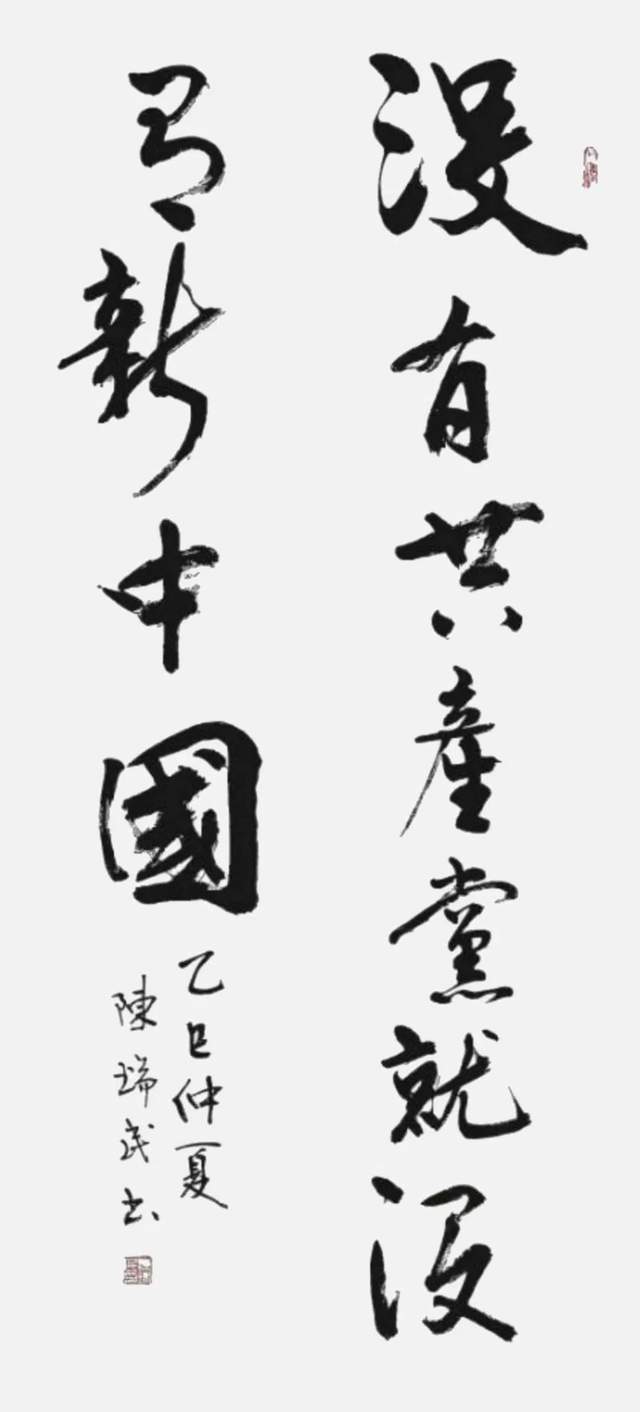 没有共產黨就没
有新中國
乙巳仲夏
陳瑞武书